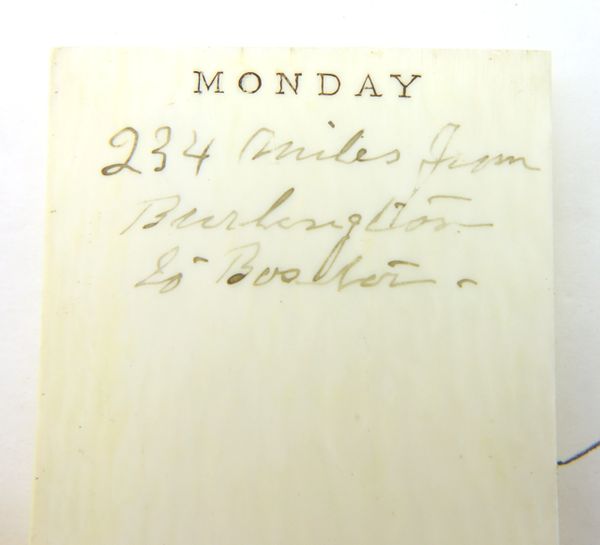 MONDAY
234 miles from
Burlington
to Boston -